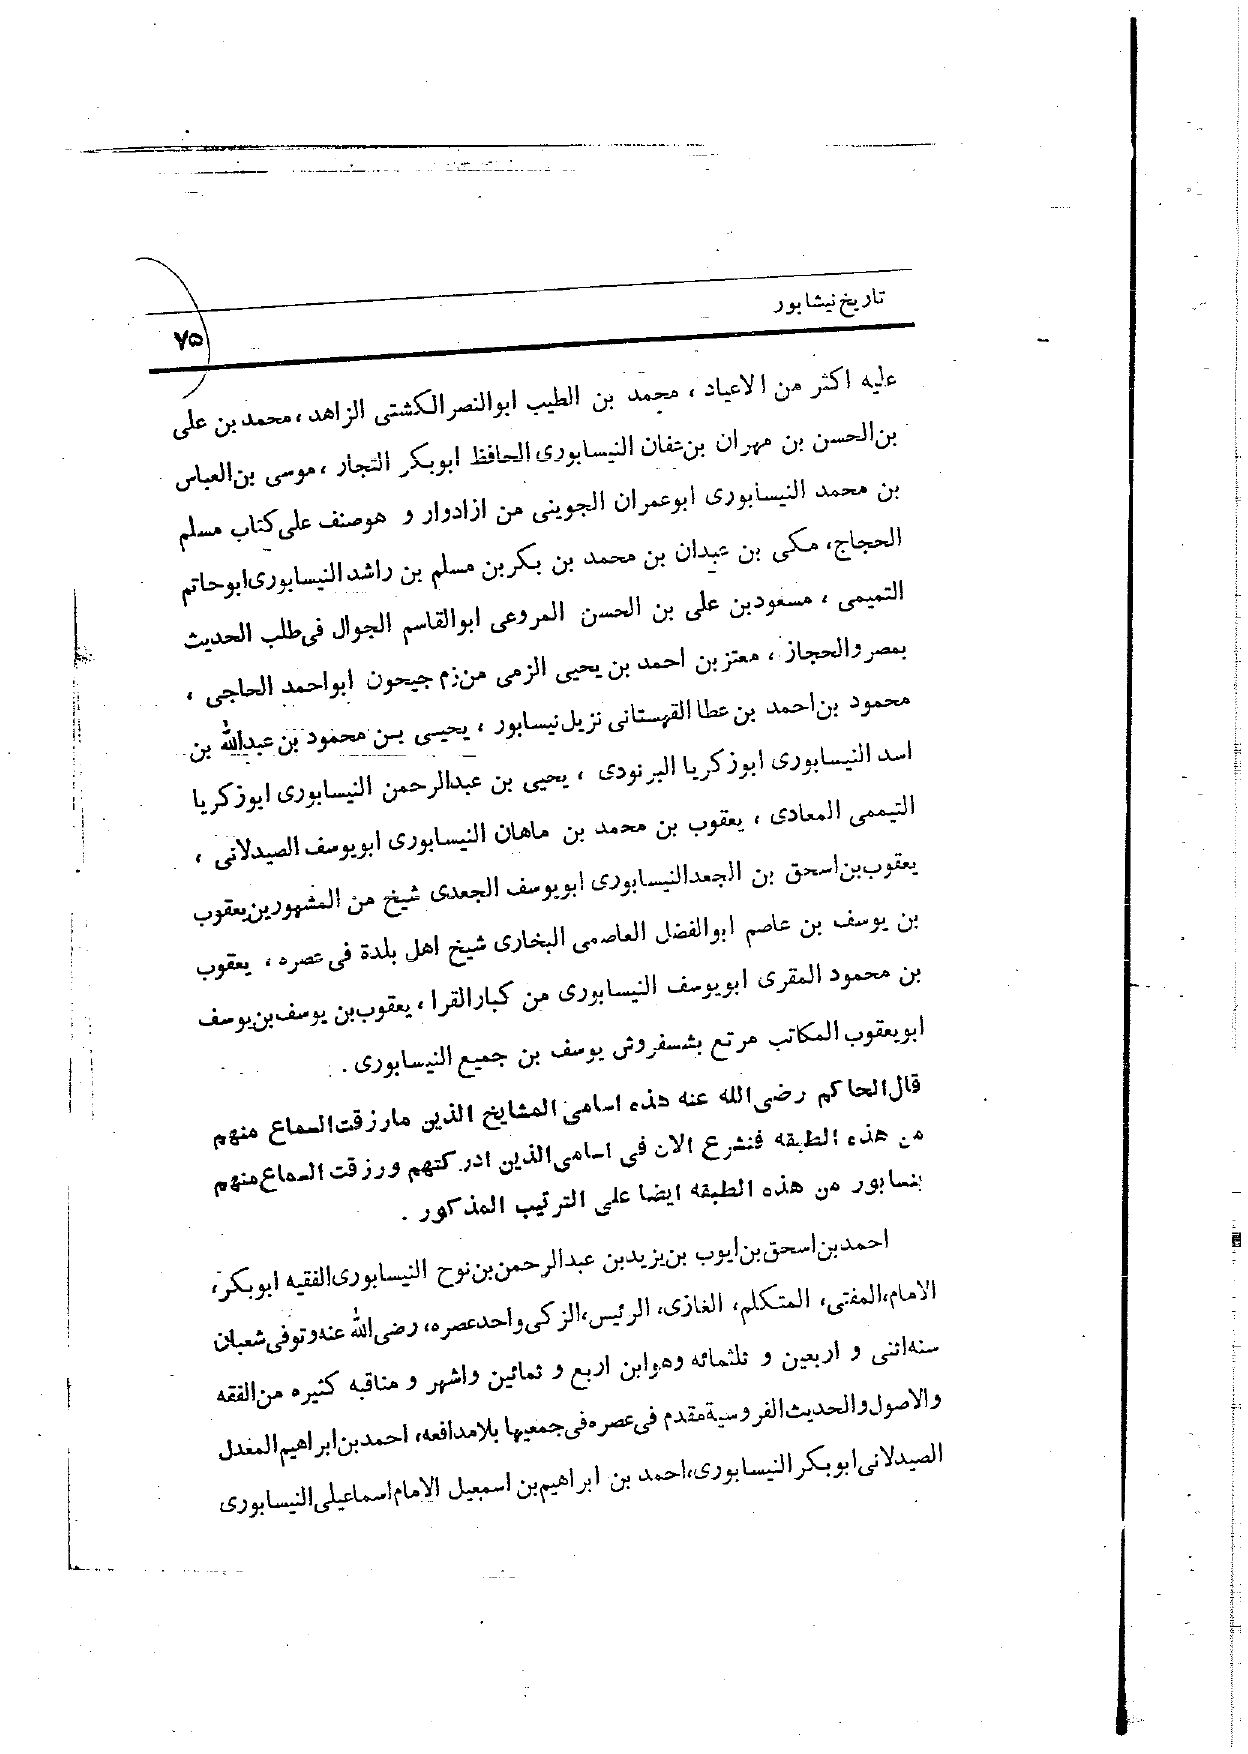 تاریخ نیشابور
۷۵
علیه اکثر من الاعیاد ، محمد بن الطیب ابوالنصر الکشتی الزاهد ، محمد بن علی
بن الحسن بن مهران بن تفان النیسابوری الحافظ ابوبکر التجار ، موسی بن العباس
بن محمد النیسابوری ابوعمران الجوینی من ازادوار و هوصنف علی کتاب مسلم
الحجاج، مکی بن عبدان بن محمد بن بکر بن مسلم بن راشد النیسابوری ابوحاتم
التمیمی ، مسعودبن علی بن الحسن المروعی ابوالقاسم الجوال فی طلب الحدیث
بمصر والحجاز ، معتز بن احمد بن یحیی الزمی من زم جیحون ابواحمد الحاجی ،
محمود بن احمد بن عطا القهستانی نزیل نیسابور ، یحیی بن محمود بن عبدالله بن
اسد النیسابوری ابوزکریا البرنودی ، یحیی بن عبدالرحمن النیسابوری ابوزکریا
التیممی المعادی ، یعقوب بن محمد بن ماهان النیسابوری ابویوسف الصیدلانی ،
یعقوب بن اسحق بن الجعد النیسابوری ابویوسف الجعدی شیخ من المشهورین یعقوب
بن یوسف بن عاصم ابوالفضل العاصمی البخاری شیخ اهل بلدة فی عصره ، یعقوب
بن محمود المقری ابویوسف النیسابوری من کبار القرا ، یعقوب بن یوسف بن یوسف
ابویعقوب المکاتب مرتع بشسفروش یوسف بن جمیع النیسابوری .
قال الحاکم رضی الله عنه هذه اسامی المشایخ الذین مارزقت السماع منهم
من هذه الطبقه فنشرع الان فی اسامی الذین ادرکتهم ورزقت السماع منهم
بنسابور من هذه الطبقه ایضا علی الترتیب المذکور .
احمدبن اسحق بن ایوب بن یزیدبن عبدالرحمن بن نوح النیسابوری الفقیه ابوبکر،
الامام، المفتی، المتکلم، الغازی، الرئیس، الزکی واحدعصره، رضی الله عنه و توفی شعبان
سنه اثنی و اربعین و ثلثمائه وهوابن اربع و ثمانین واشهر و مناقبه کثیره من الفقه
والاصول والحدیث الفروسیة مقدم فی عصره فی جمعیها بلامدافعه، احمدبن ابراهیم المعدل
الصیدلانی ابوبکر النیسابوری، احمد بن ابراهیم بن اسمعیل الامام اسماعیلی النیسابوری